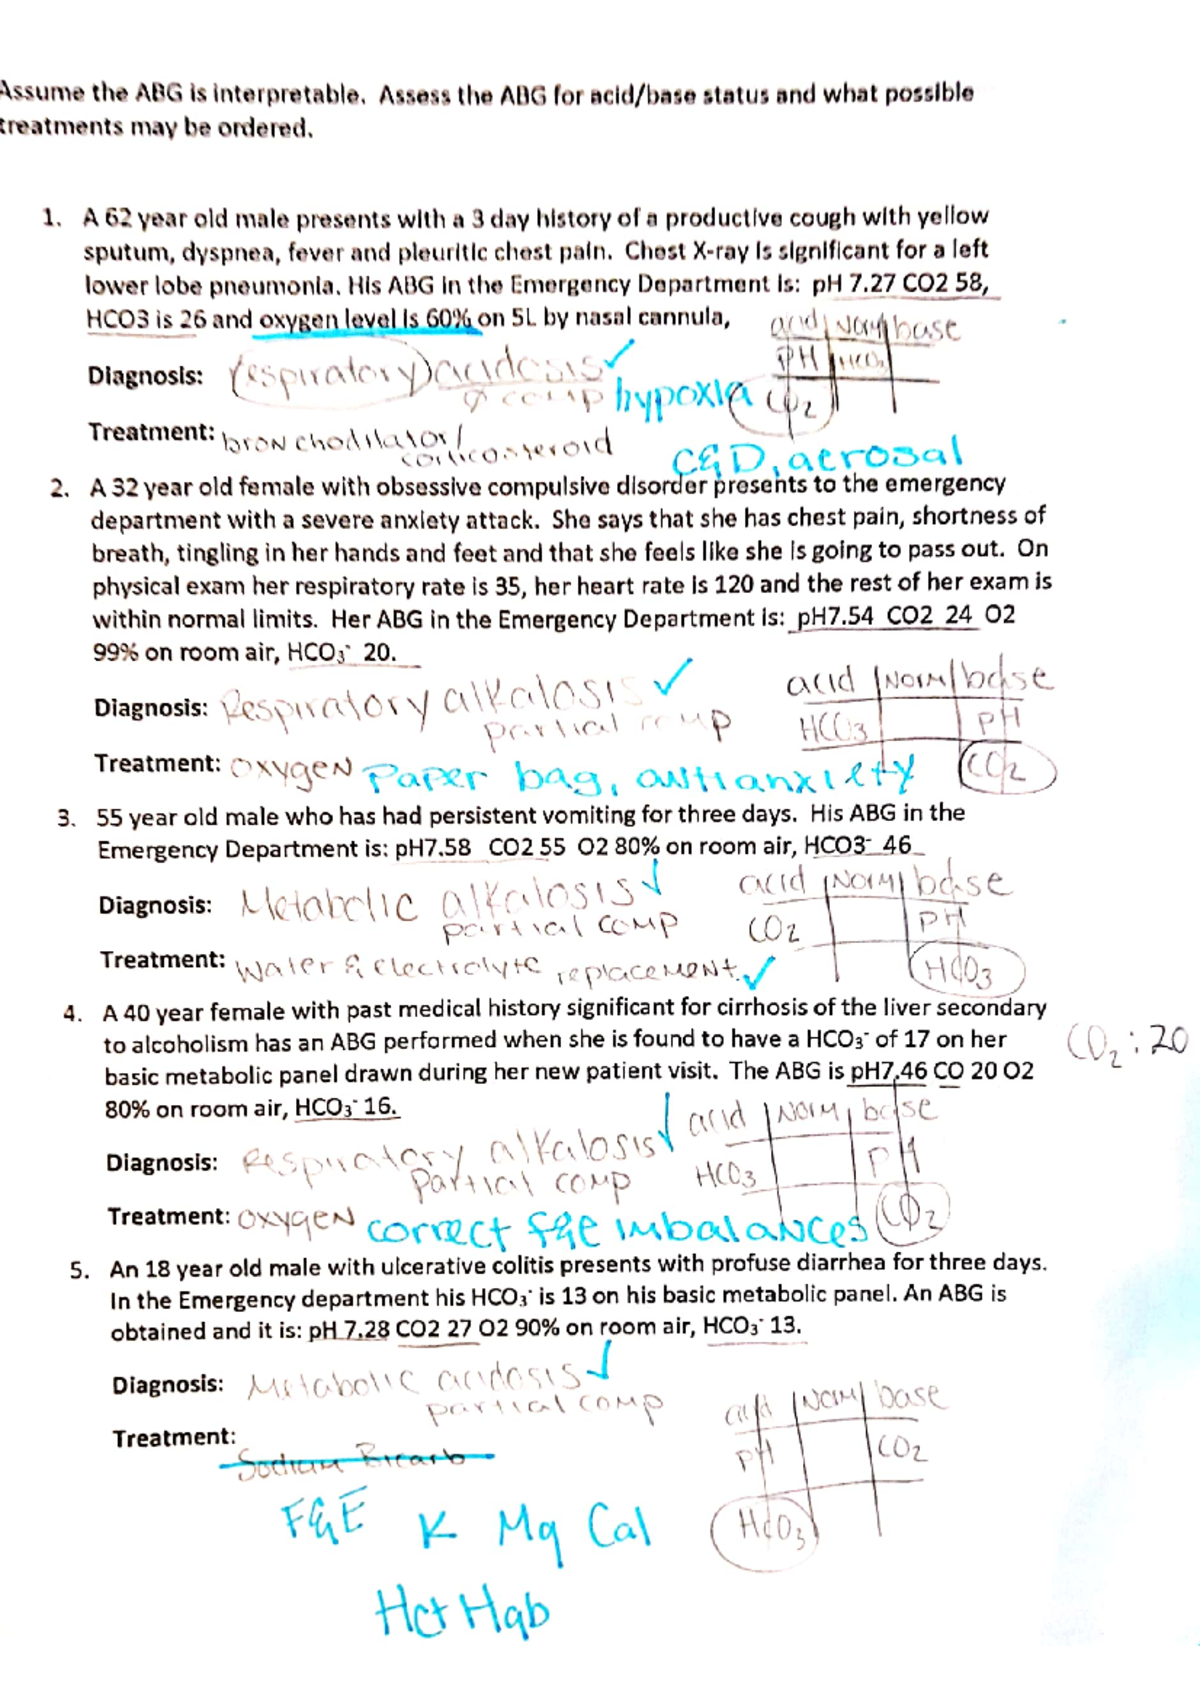 Assume the ABG is interpretable. Assess the ABG for acid/base status and what possible
treatments may be ordered.
1. A 62 year old male presents with a 3 day history of a productive cough with yellow
sputum, dyspnea, fever and pleuritic chest pain. Chest X-ray is significant for a left
lower lobe pneumonia. His ABG in the Emergency Department is: pH 7.27 CO2 58,
HCO3 is 26 and oxygen level is 60% on 5L by nasal cannula,
acid Norm base
PH HCO3
CO2
Diagnosis: respiratory acidosis ✓
∅ comp hypoxia
Treatment: bronchodilator/
corticosteroid
C&D, aerosal
2. A 32 year old female with obsessive compulsive disorder presents to the emergency
department with a severe anxiety attack. She says that she has chest pain, shortness of
breath, tingling in her hands and feet and that she feels like she is going to pass out. On
physical exam her respiratory rate is 35, her heart rate is 120 and the rest of her exam is
within normal limits. Her ABG in the Emergency Department is: pH7.54 CO2 24 O2
99% on room air, HCO3- 20.
acid Norm base
HCO3 PH
CO2
Diagnosis: Respiratory alkalosis ✓
partial comp
Treatment: oxygen Paper bag, antianxiety
3. 55 year old male who has had persistent vomiting for three days. His ABG in the
Emergency Department is: pH7.58 CO2 55 O2 80% on room air, HCO3- 46
acid Norm base
CO2 PH
HCO3
Diagnosis: Metabolic alkalosis ✓
partial comp
Treatment: Water & electrolyte replacement. ✓
4. A 40 year female with past medical history significant for cirrhosis of the liver secondary
to alcoholism has an ABG performed when she is found to have a HCO3- of 17 on her
CO2: 20
basic metabolic panel drawn during her new patient visit. The ABG is pH7.46 CO 20 O2
80% on room air, HCO3- 16.
acid Norm base
HCO3 PH
CO2
Diagnosis: Respiratory alkalosis ✓
Partial comp
Treatment: oxygen correct F&E imbalances
5. An 18 year old male with ulcerative colitis presents with profuse diarrhea for three days.
In the Emergency department his HCO3- is 13 on his basic metabolic panel. An ABG is
obtained and it is: pH 7.28 CO2 27 O2 90% on room air, HCO3- 13.
Diagnosis: Metabolic acidosis ✓
partial comp
acid Norm base
PH CO2
HCO3
Treatment:
Sodium Bicarb
F&E K Mg Cal
Hct Hgb